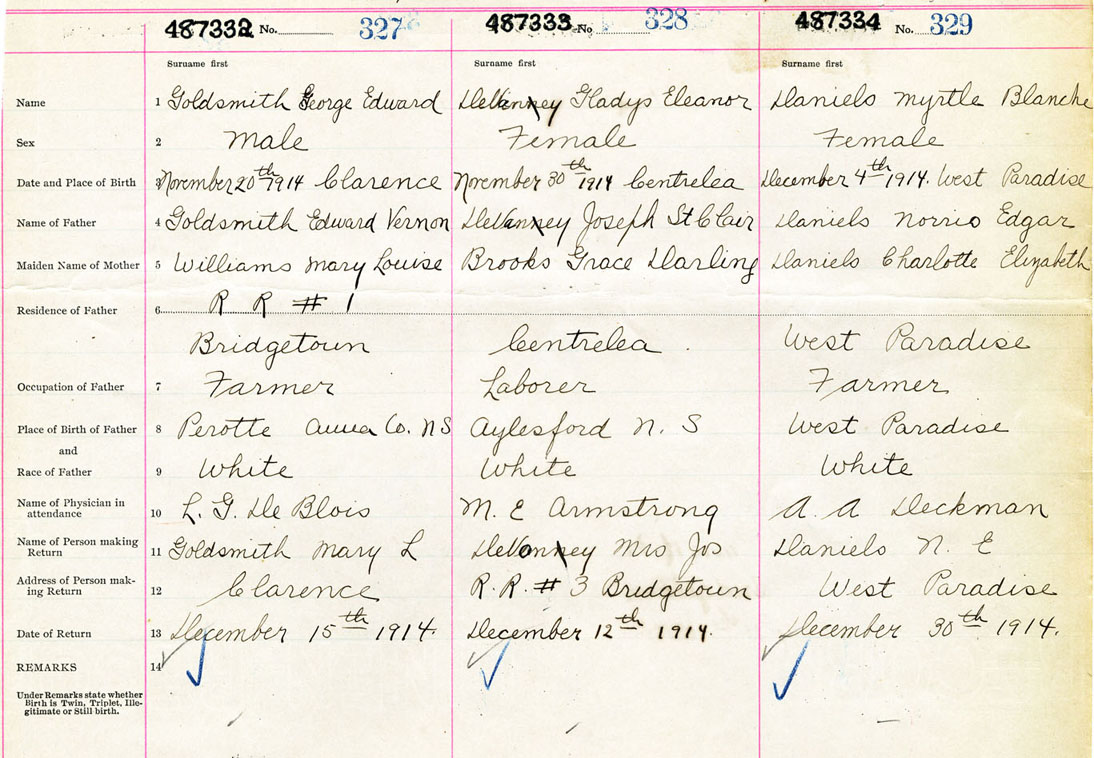 487332 No. 327 487333 No 328 487334 No. 329
Surname first Surname first Surname first
Name 1 Goldsmith George Edward DeVanney Gladys Eleanor Daniels Myrtle Blanche
Sex 2 Male Female Female
Date and Place of Birth 3 November 20th 1914 Clarence November 30th 1914 Centrelea December 4th 1914. West Paradise
Name of Father 4 Goldsmith Edward Vernon DeVanney Joseph St Clair Daniels Norris Edgar
Maiden Name of Mother 5 Williams Mary Louise Brooks Grace Darling Daniels Charlotte Elizabeth
R R # 1
Residence of Father 6
Bridgetown Centrelea . West Paradise
Occupation of Father 7 Farmer Laborer Farmer
Place of Birth of Father 8 Perotte Anna Co. NS Aylesford N. S West Paradise
and
Race of Father 9 White White White
Name of Physician in
attendance 10 L. G. De Blois M. E Armstrong A. A Deckman
Name of Person making
Return 11 Goldsmith Mary L DeVonney Mrs Jos Daniels N. E
Address of Person mak-
ing Return 12 Clarence R. R. # 3 Bridgetown West Paradise
Date of Return 13 December 15th 1914. December 12th 1914. December 30th 1914.
REMARKS 14
Under Remarks state whether
Birth is Twin, Triplet, Ille-
gitimate or Still birth.